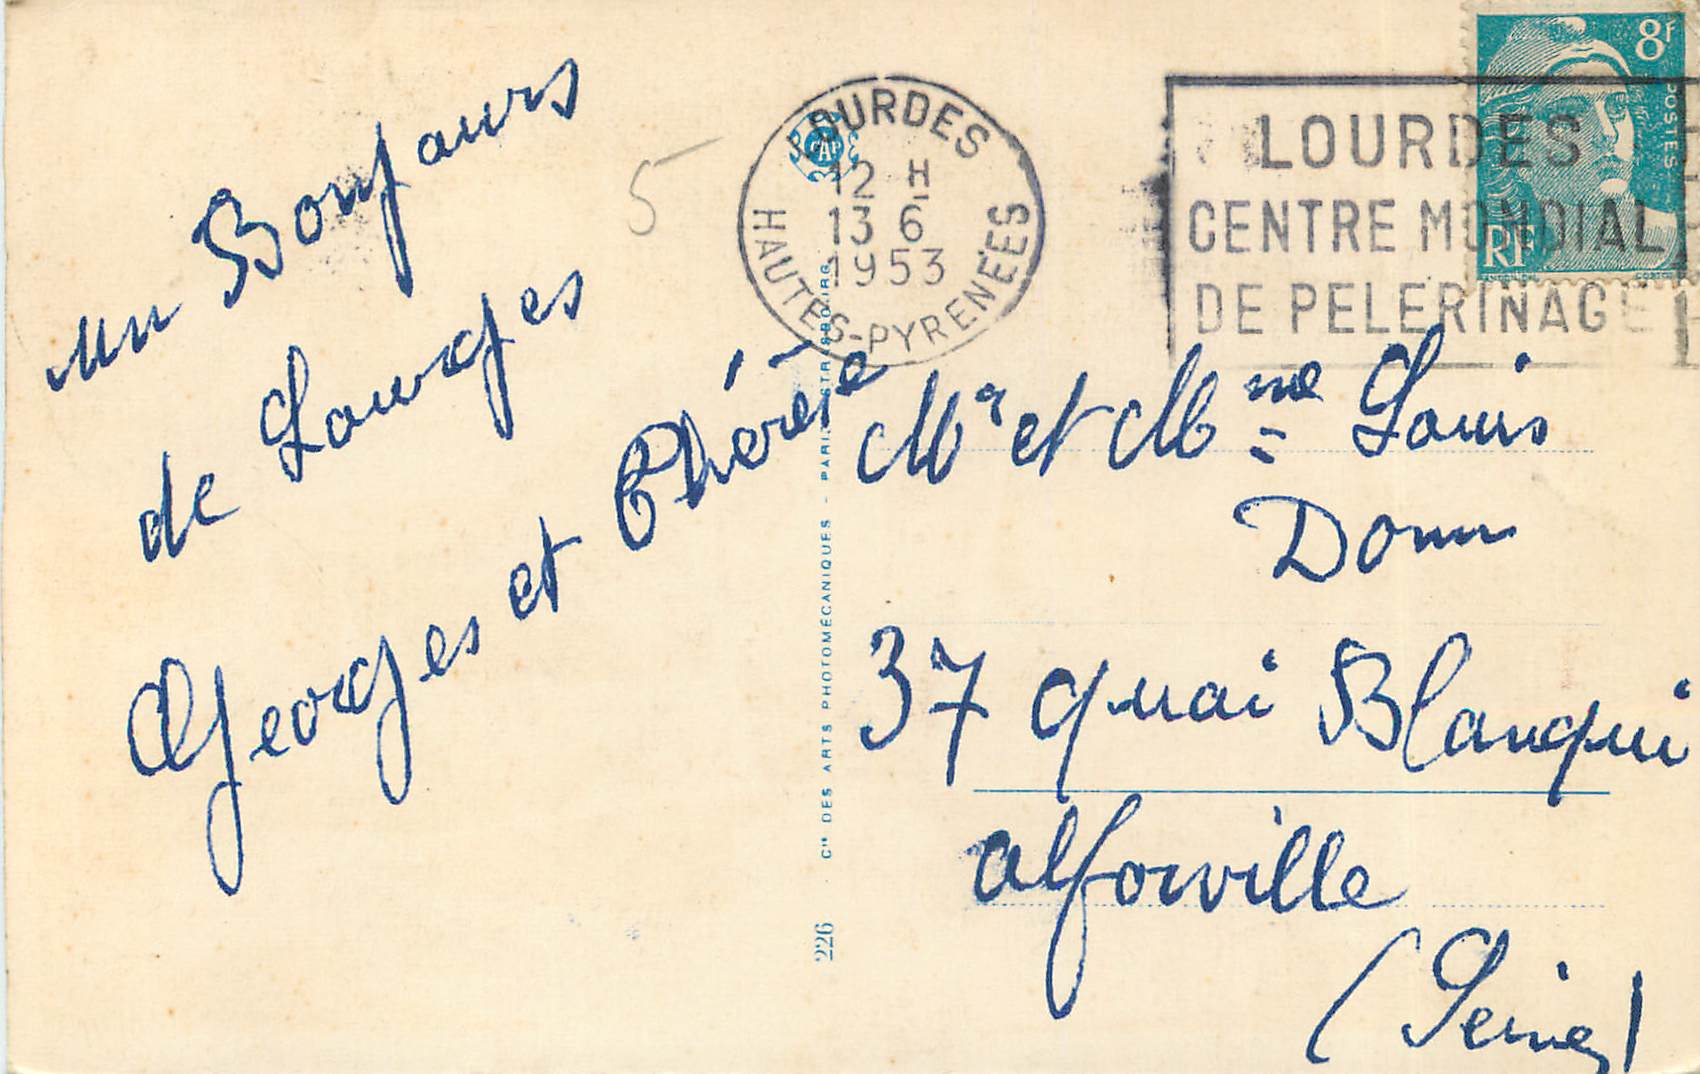 un Bonjours
de Lourdes
Georges et Thérèse
5
LOURDES
12 H
13 6
1953
HAUTES-PYRENÉES
LOURDES
CENTRE MONDIAL
DE PELERINAGE
8F
POSTES
RF
CAP
226 . Cie DES ARTS PHOTOMÉCANIQUES - PARIS-STRASBOURG
Mr et Mme Louis
37 quai Blanqui
alforville
(Seine)